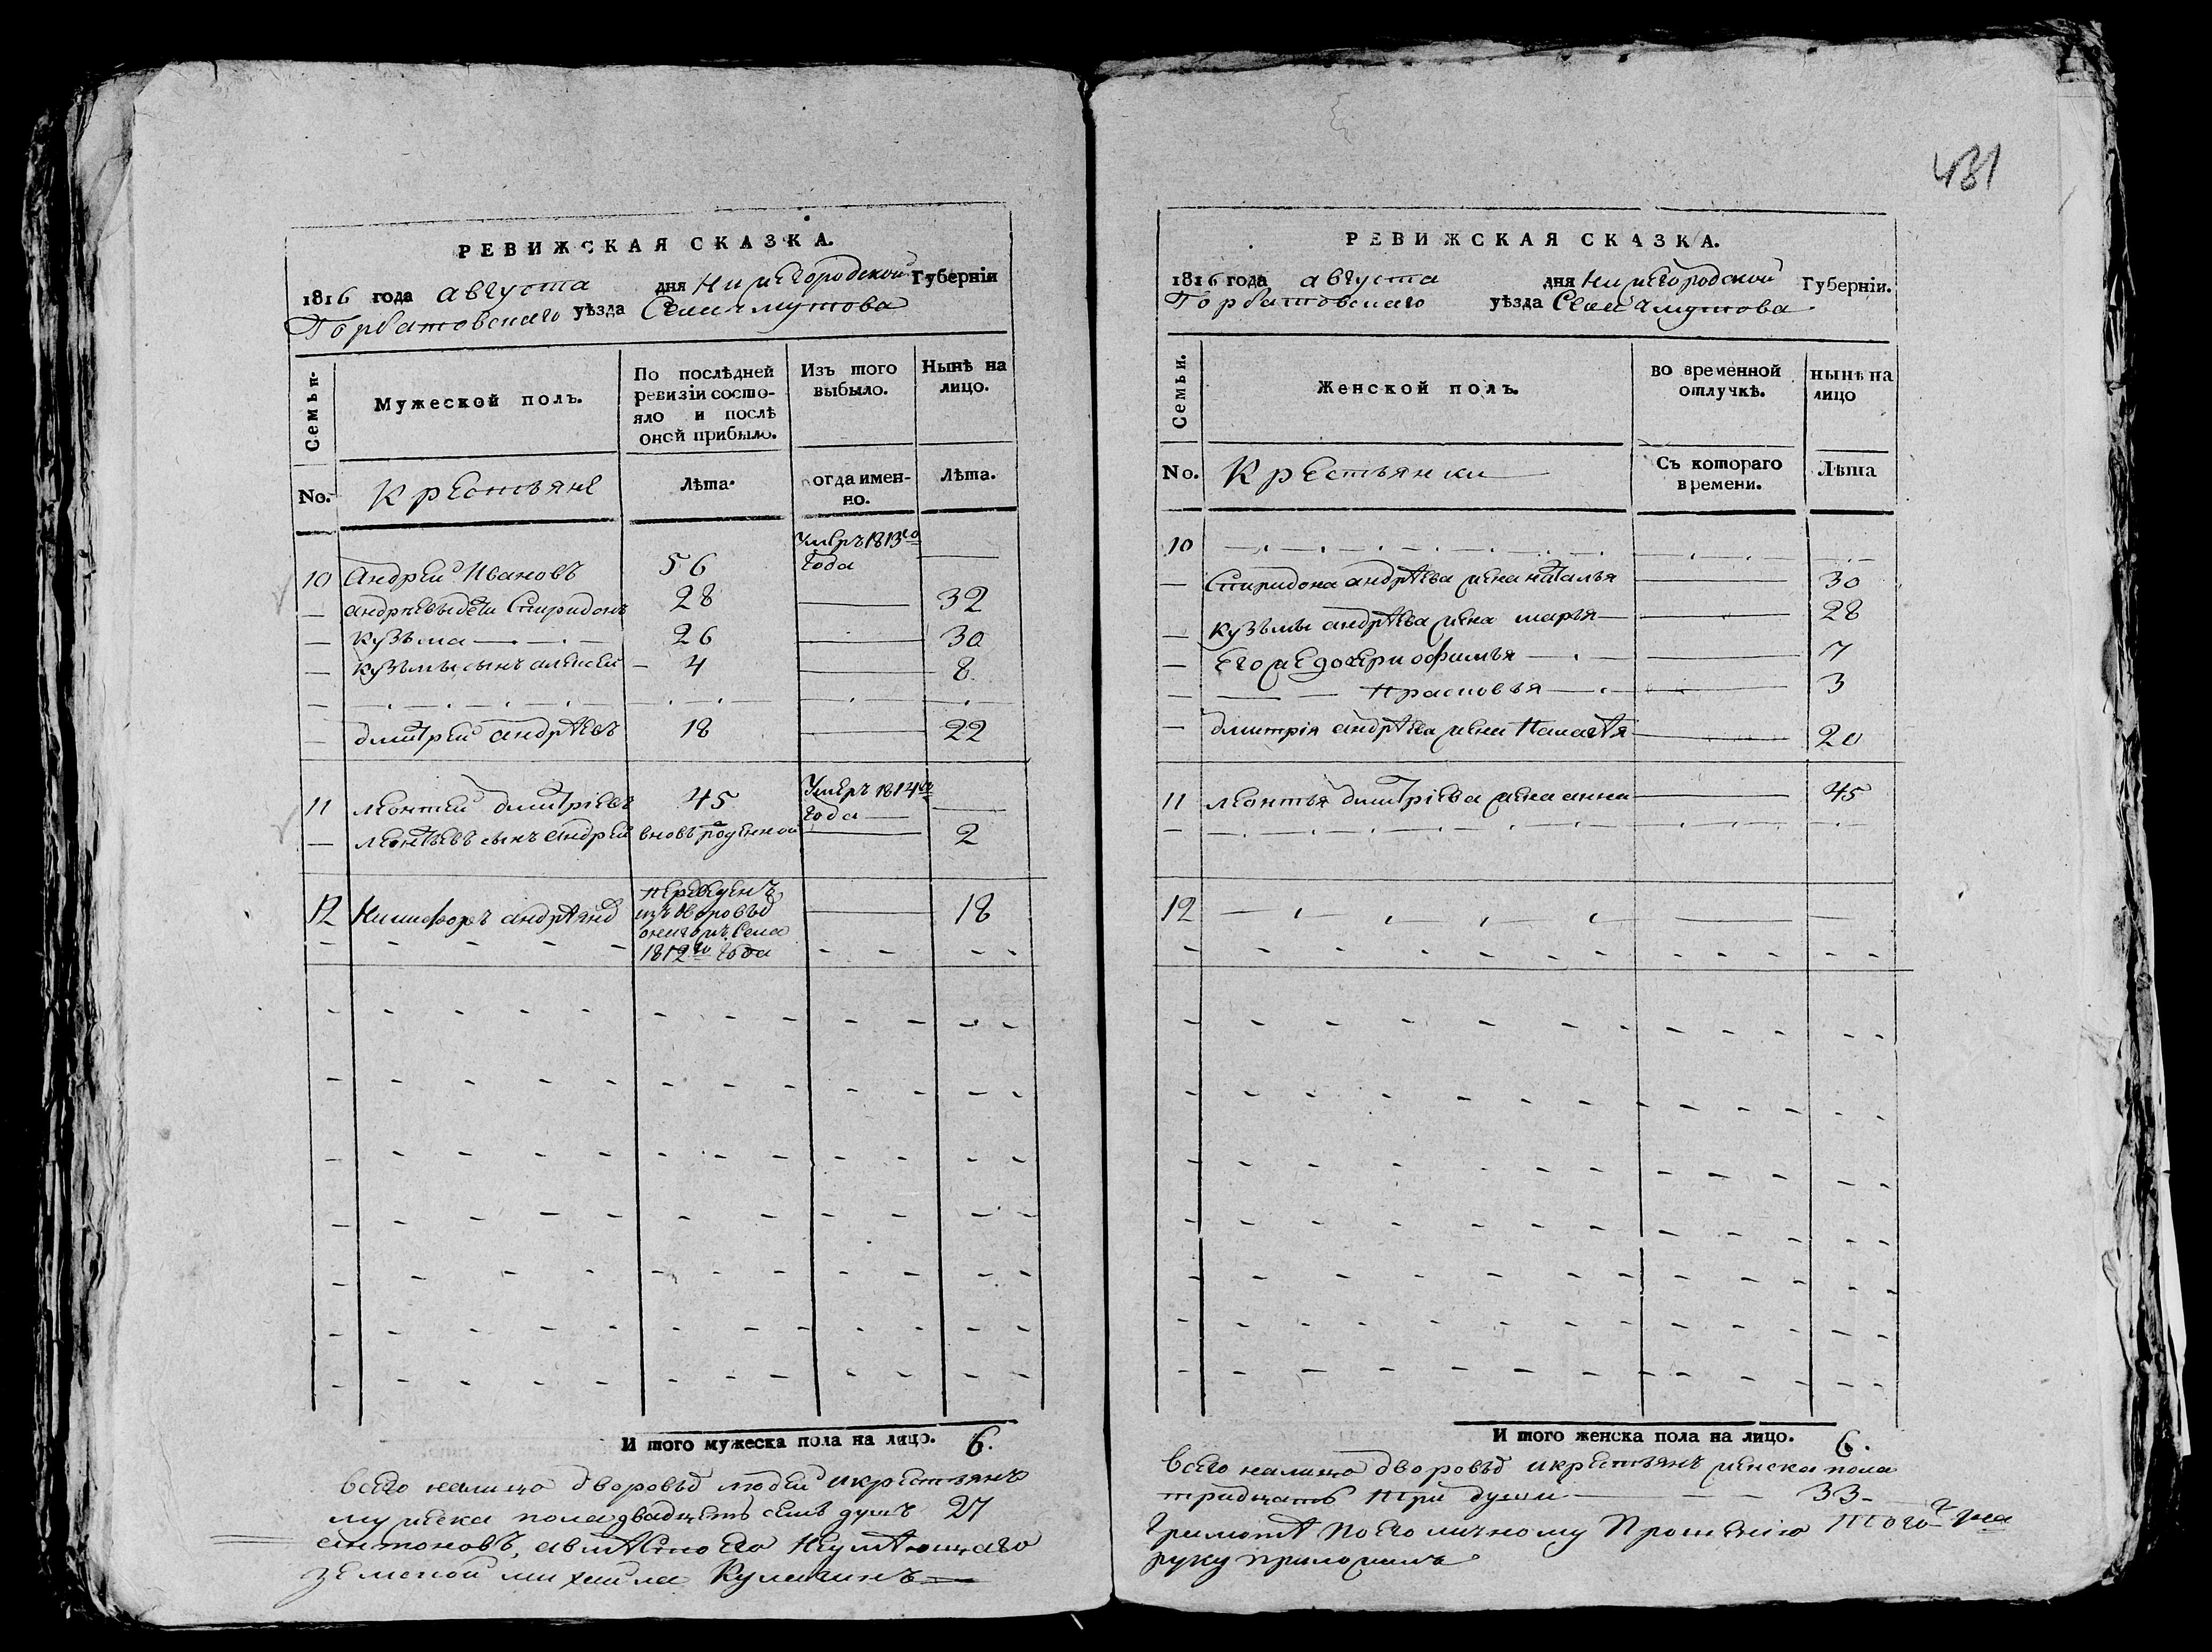 431
РЕВИЖСКАЯ СКАЗКА.
1816 года августа дня Нижегородской Губерніи
Горбатовскаго уѣзда Села Чмутова
Семьи.
Мужеской полъ.
По послѣдней ревизіи состояло и послѣ оной прибыло.
Изъ того выбыло.
Нынѣ на лицо.
No.
Крестьяне
Лѣта.
когда именно.
Лѣта.
10 Андрей Ивановъ 56 Умеръ 1813го года —
— андреевы дети Спиридонъ 28 — 32
— кузьма 26 — 30
— кузьмы сынъ алексей 4 — 8
— дмитрей андрѣевъ 18 — 22
11 леонтей дмитріевъ 45 Умеръ 1814го года —
— леонтьевъ сынъ андрей вновь рожденной — 2
12 Никифоръ андрѣянов переведенъ изъ дворовыхъ оного жъ села 1812го года — 18
И того мужеска пола на лицо. 6.
всего налицо дворовых людей и крестьянъ
мужеска пола двадцеть семь душъ 27
антоновъ, а вместо его неумѣющаго
земской михайла Куликинъ
РЕВИЖСКАЯ СКАЗКА.
1816 года августа дня Нижегородской Губерніи.
Горбатовскаго уѣзда Села Чмутова
Семьи.
Женской полъ.
во временной отлучкѣ.
нынѣ на лицо
No.
Крестьянки
Съ котораго времени.
Лѣта
10
— Спиридона андрѣева жена наталья — 30
— кузьмы андрѣева жена марья — 28
— его же дочери офимья — 7
— прасковья — 3
— дмитрія андрѣева жена Палагѣя — 20
11 леонтья дмитріева жена анна — 45
12
И того женска пола на лицо. 6.
всего налицо дворовых и крестьянъ женска пола
тридцать три души 33
Грамотѣ по его личному Прошенію того ж
руку приложилъ